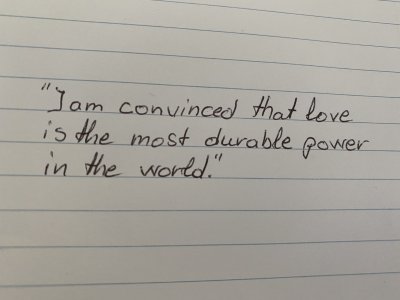 "I am convinced that love
is the most durable power
in the world."